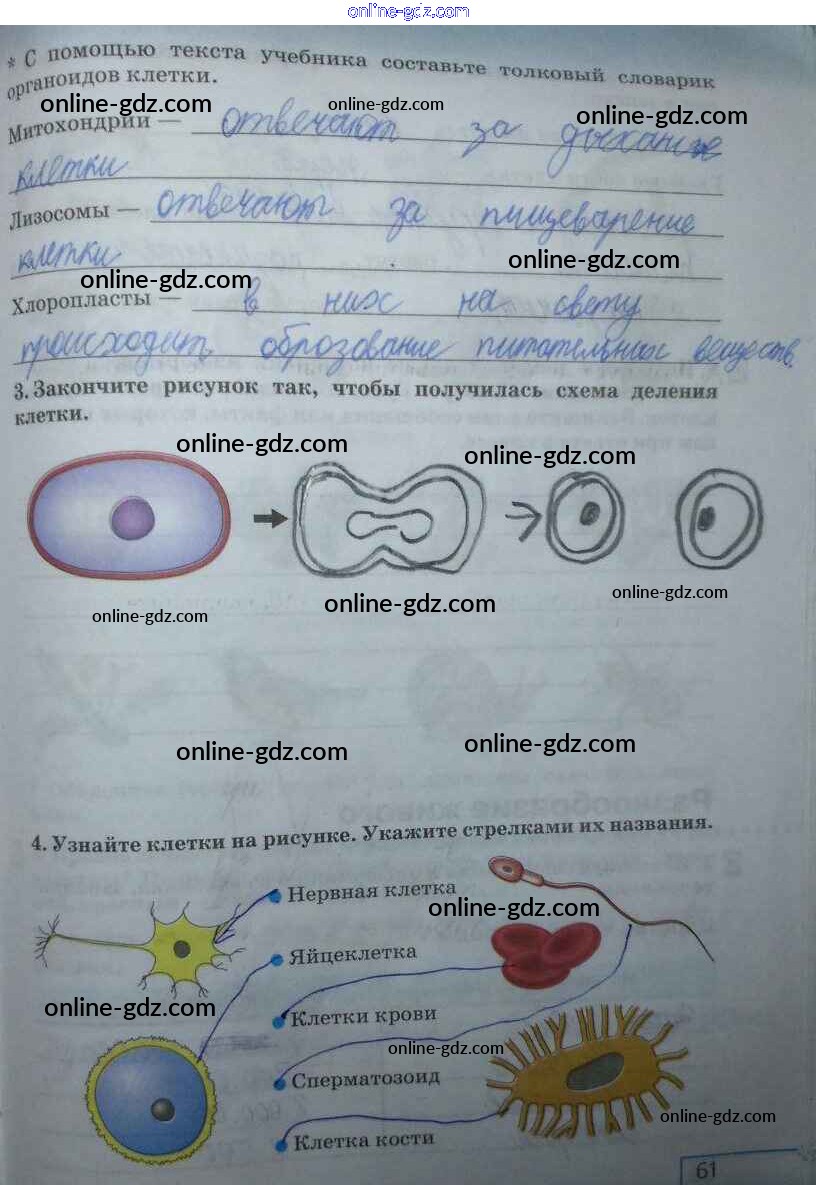 online-gdz.com
* С помощью текста учебника составьте толковый словарик
органоидов клетки.
online-gdz.com online-gdz.com online-gdz.com
Митохондрии — отвечают за дыхание
клетки
Лизосомы — отвечают за пищеварение
клетки
online-gdz.com online-gdz.com
Хлоропласты — в них на свету
происходит образование питательных веществ.
3. Закончите рисунок так, чтобы получилась схема деления
клетки.
online-gdz.com online-gdz.com
online-gdz.com online-gdz.com online-gdz.com
online-gdz.com online-gdz.com
4. Узнайте клетки на рисунке. Укажите стрелками их названия.
Нервная клетка
online-gdz.com
Яйцеклетка
online-gdz.com
Клетки крови
online-gdz.com
Сперматозоид
online-gdz.com
Клетка кости
61